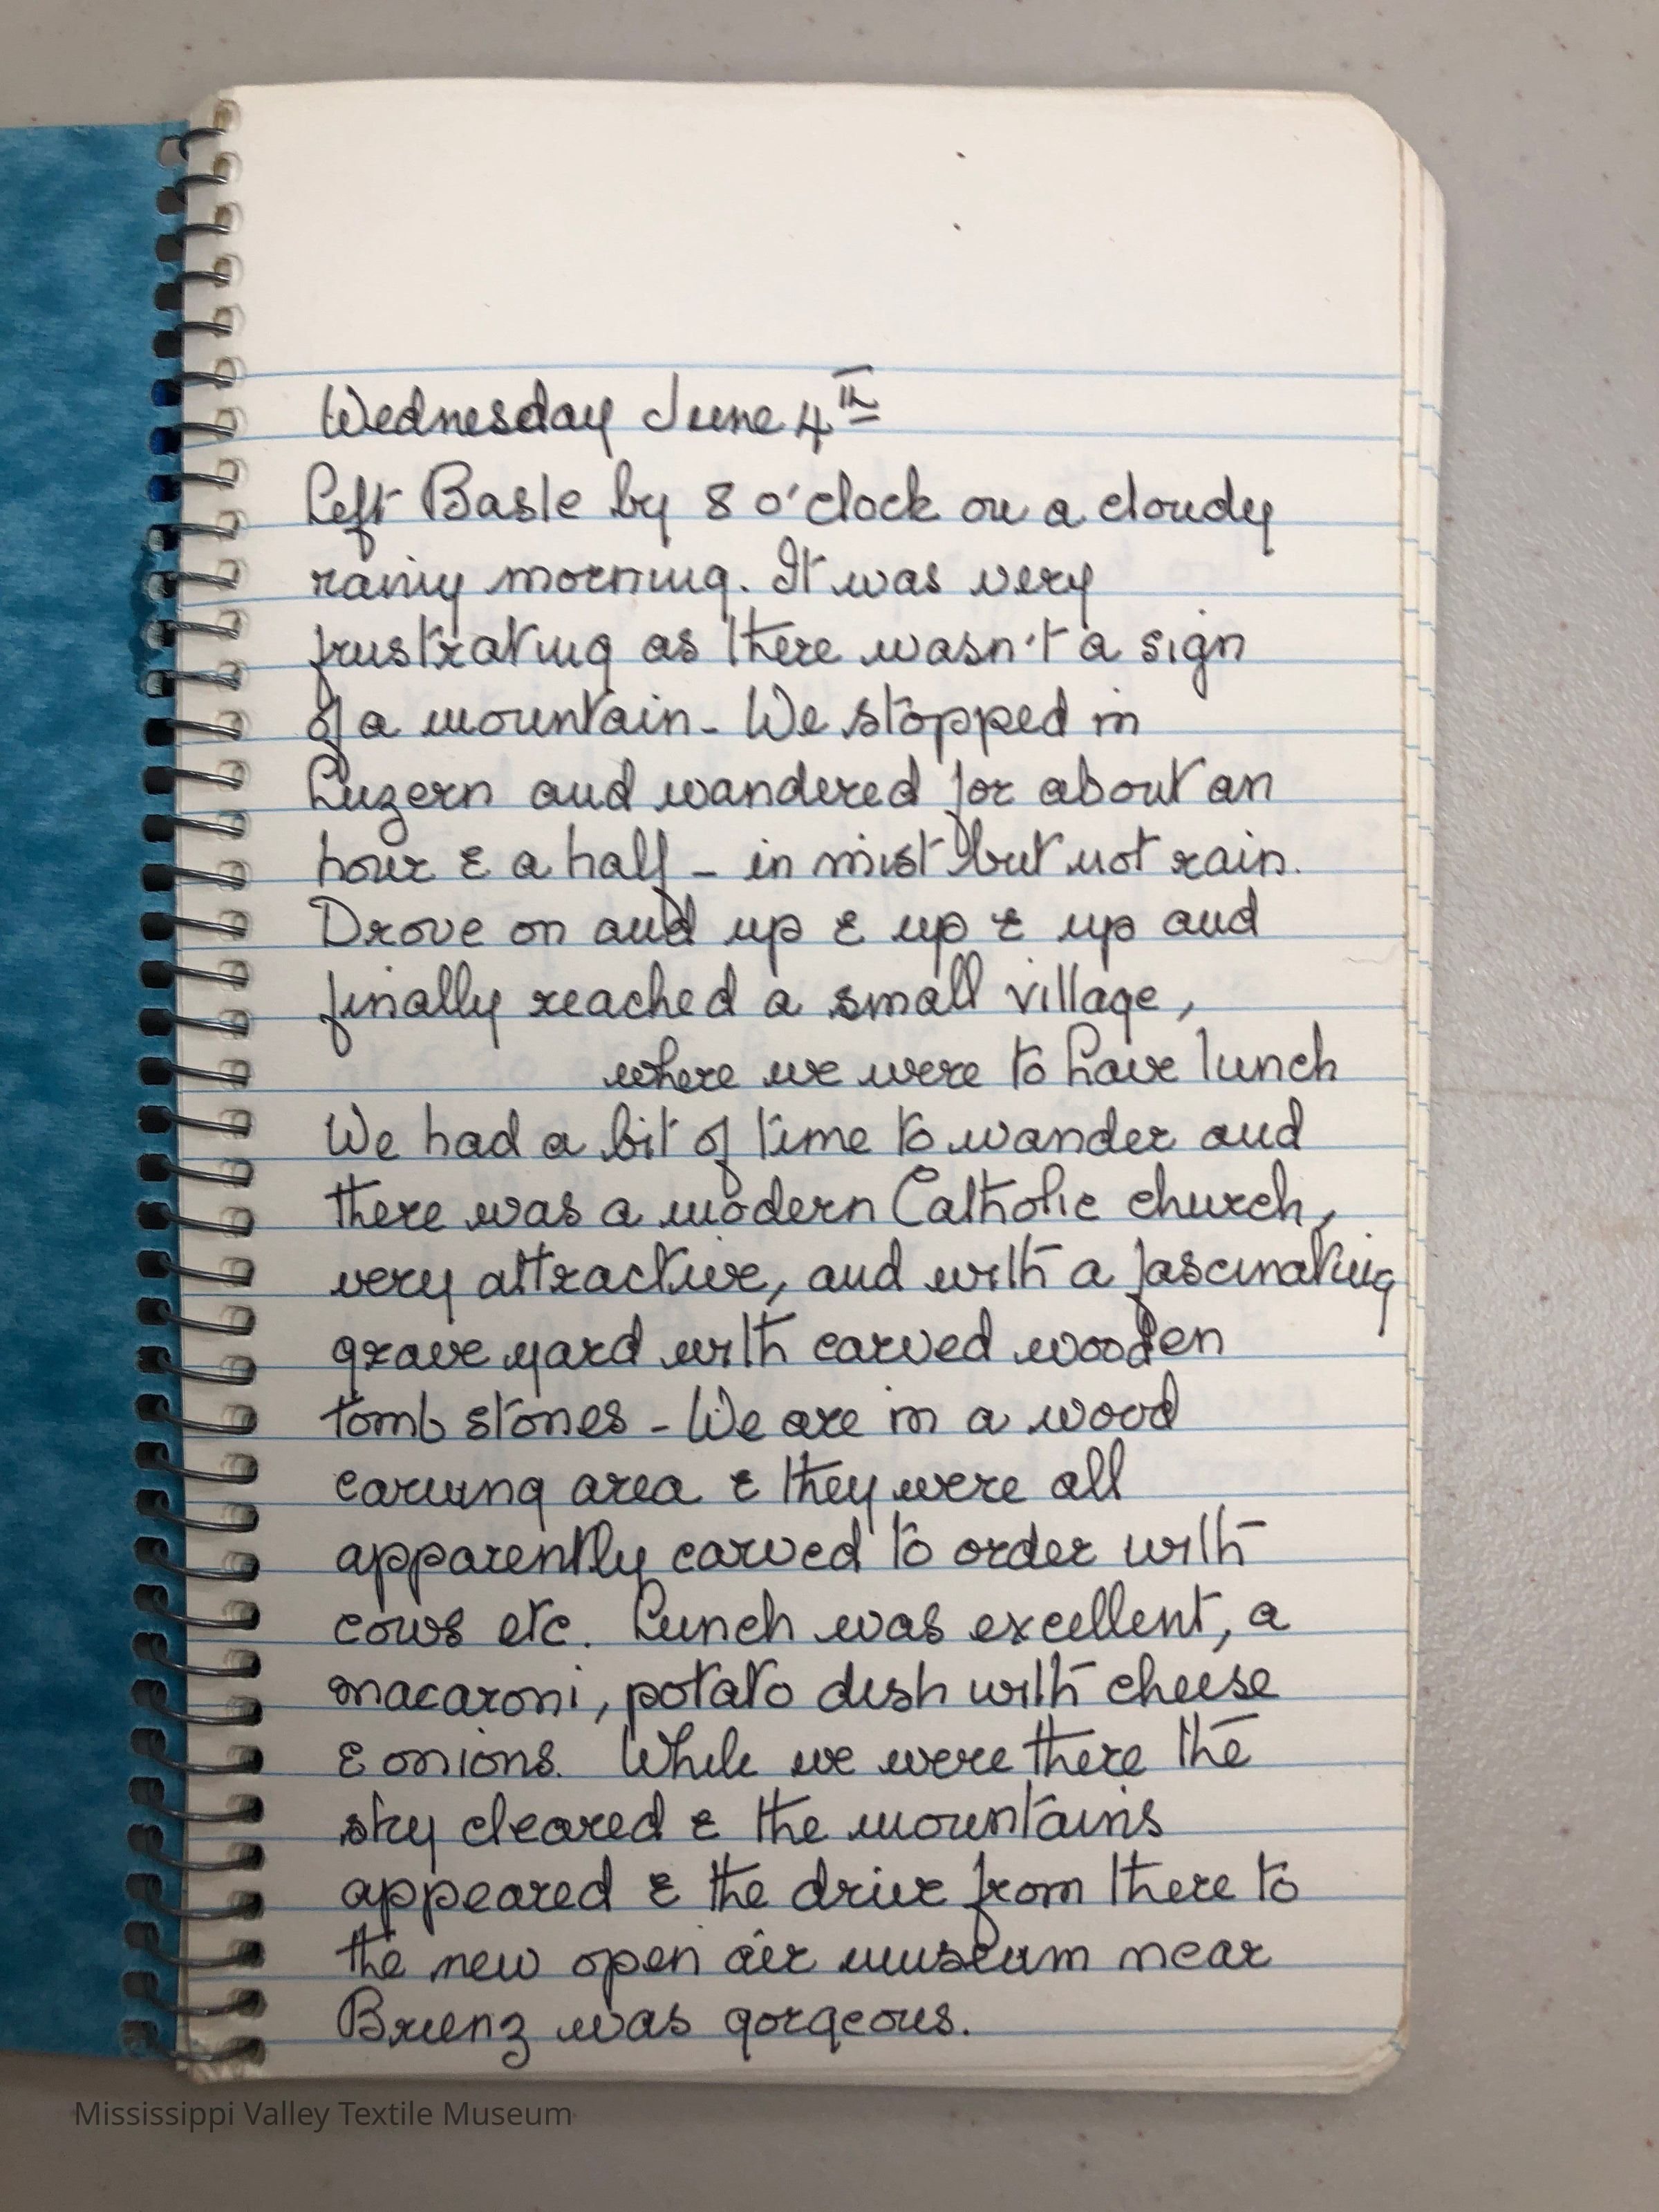 Wednesday June 4th
Left Basle by 8 o'clock on a cloudy
rainy morning. It was very
frustrating as there wasn't a sign
of a mountain - We stopped in
Luzern and wandered for about an
hour & a half - in mist but not rain.
Drove on and up & up & up and
finally reached a small village,
where we were to have lunch
We had a bit of time to wander and
there was a modern Catholic church,
very attractive, and with a fascinating
grave yard with carved wooden
tomb stones - We are in a wood
carving area & they were all
apparently carved to order with
cows etc. Lunch was excellent, a
macaroni, potato dish with cheese
& onions. While we were there the
sky cleared & the mountains
appeared & the drive from there to
the new open air museum near
Brienz was gorgeous.
Mississippi Valley Textile Museum